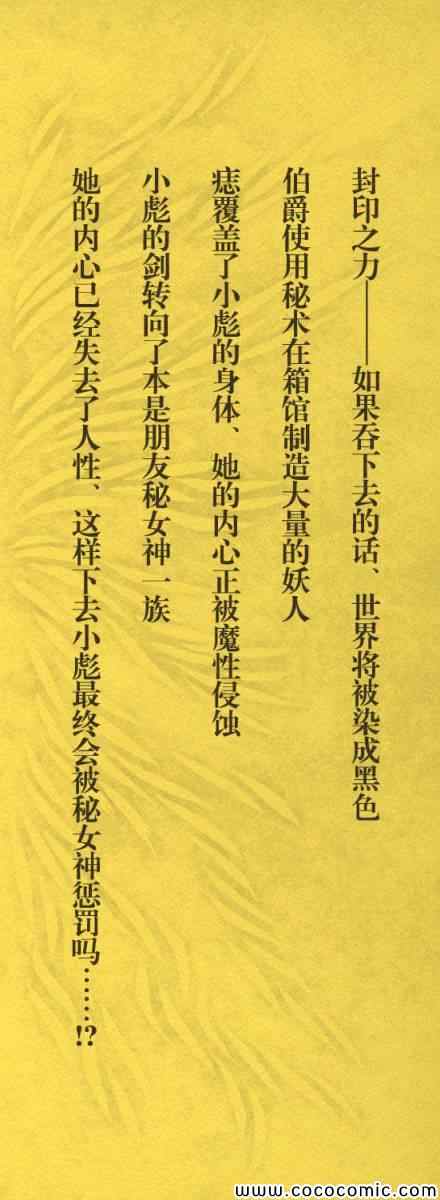 封印之力——如果吞下去的话、世界将被染成黑色
伯爵使用秘术在箱馆制造大量的妖人
痣覆盖了小彪的身体、她的内心正被魔性侵蚀
小彪的剑转向了本是朋友秘女神一族
她的内心已经失去了人性、这样下去小彪最终会被秘女神惩罚吗……!?
www.cococomic.com